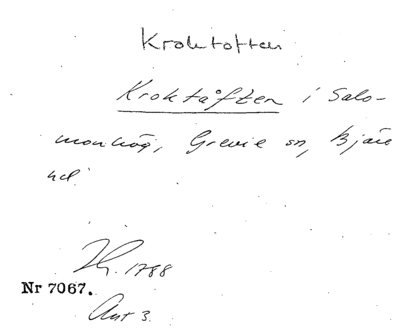 Kroktotten
Kroktåften i Salo-
monhög, Grevie sn, Bjäre
hd.
1788
Nr 7067.
Akt 3.